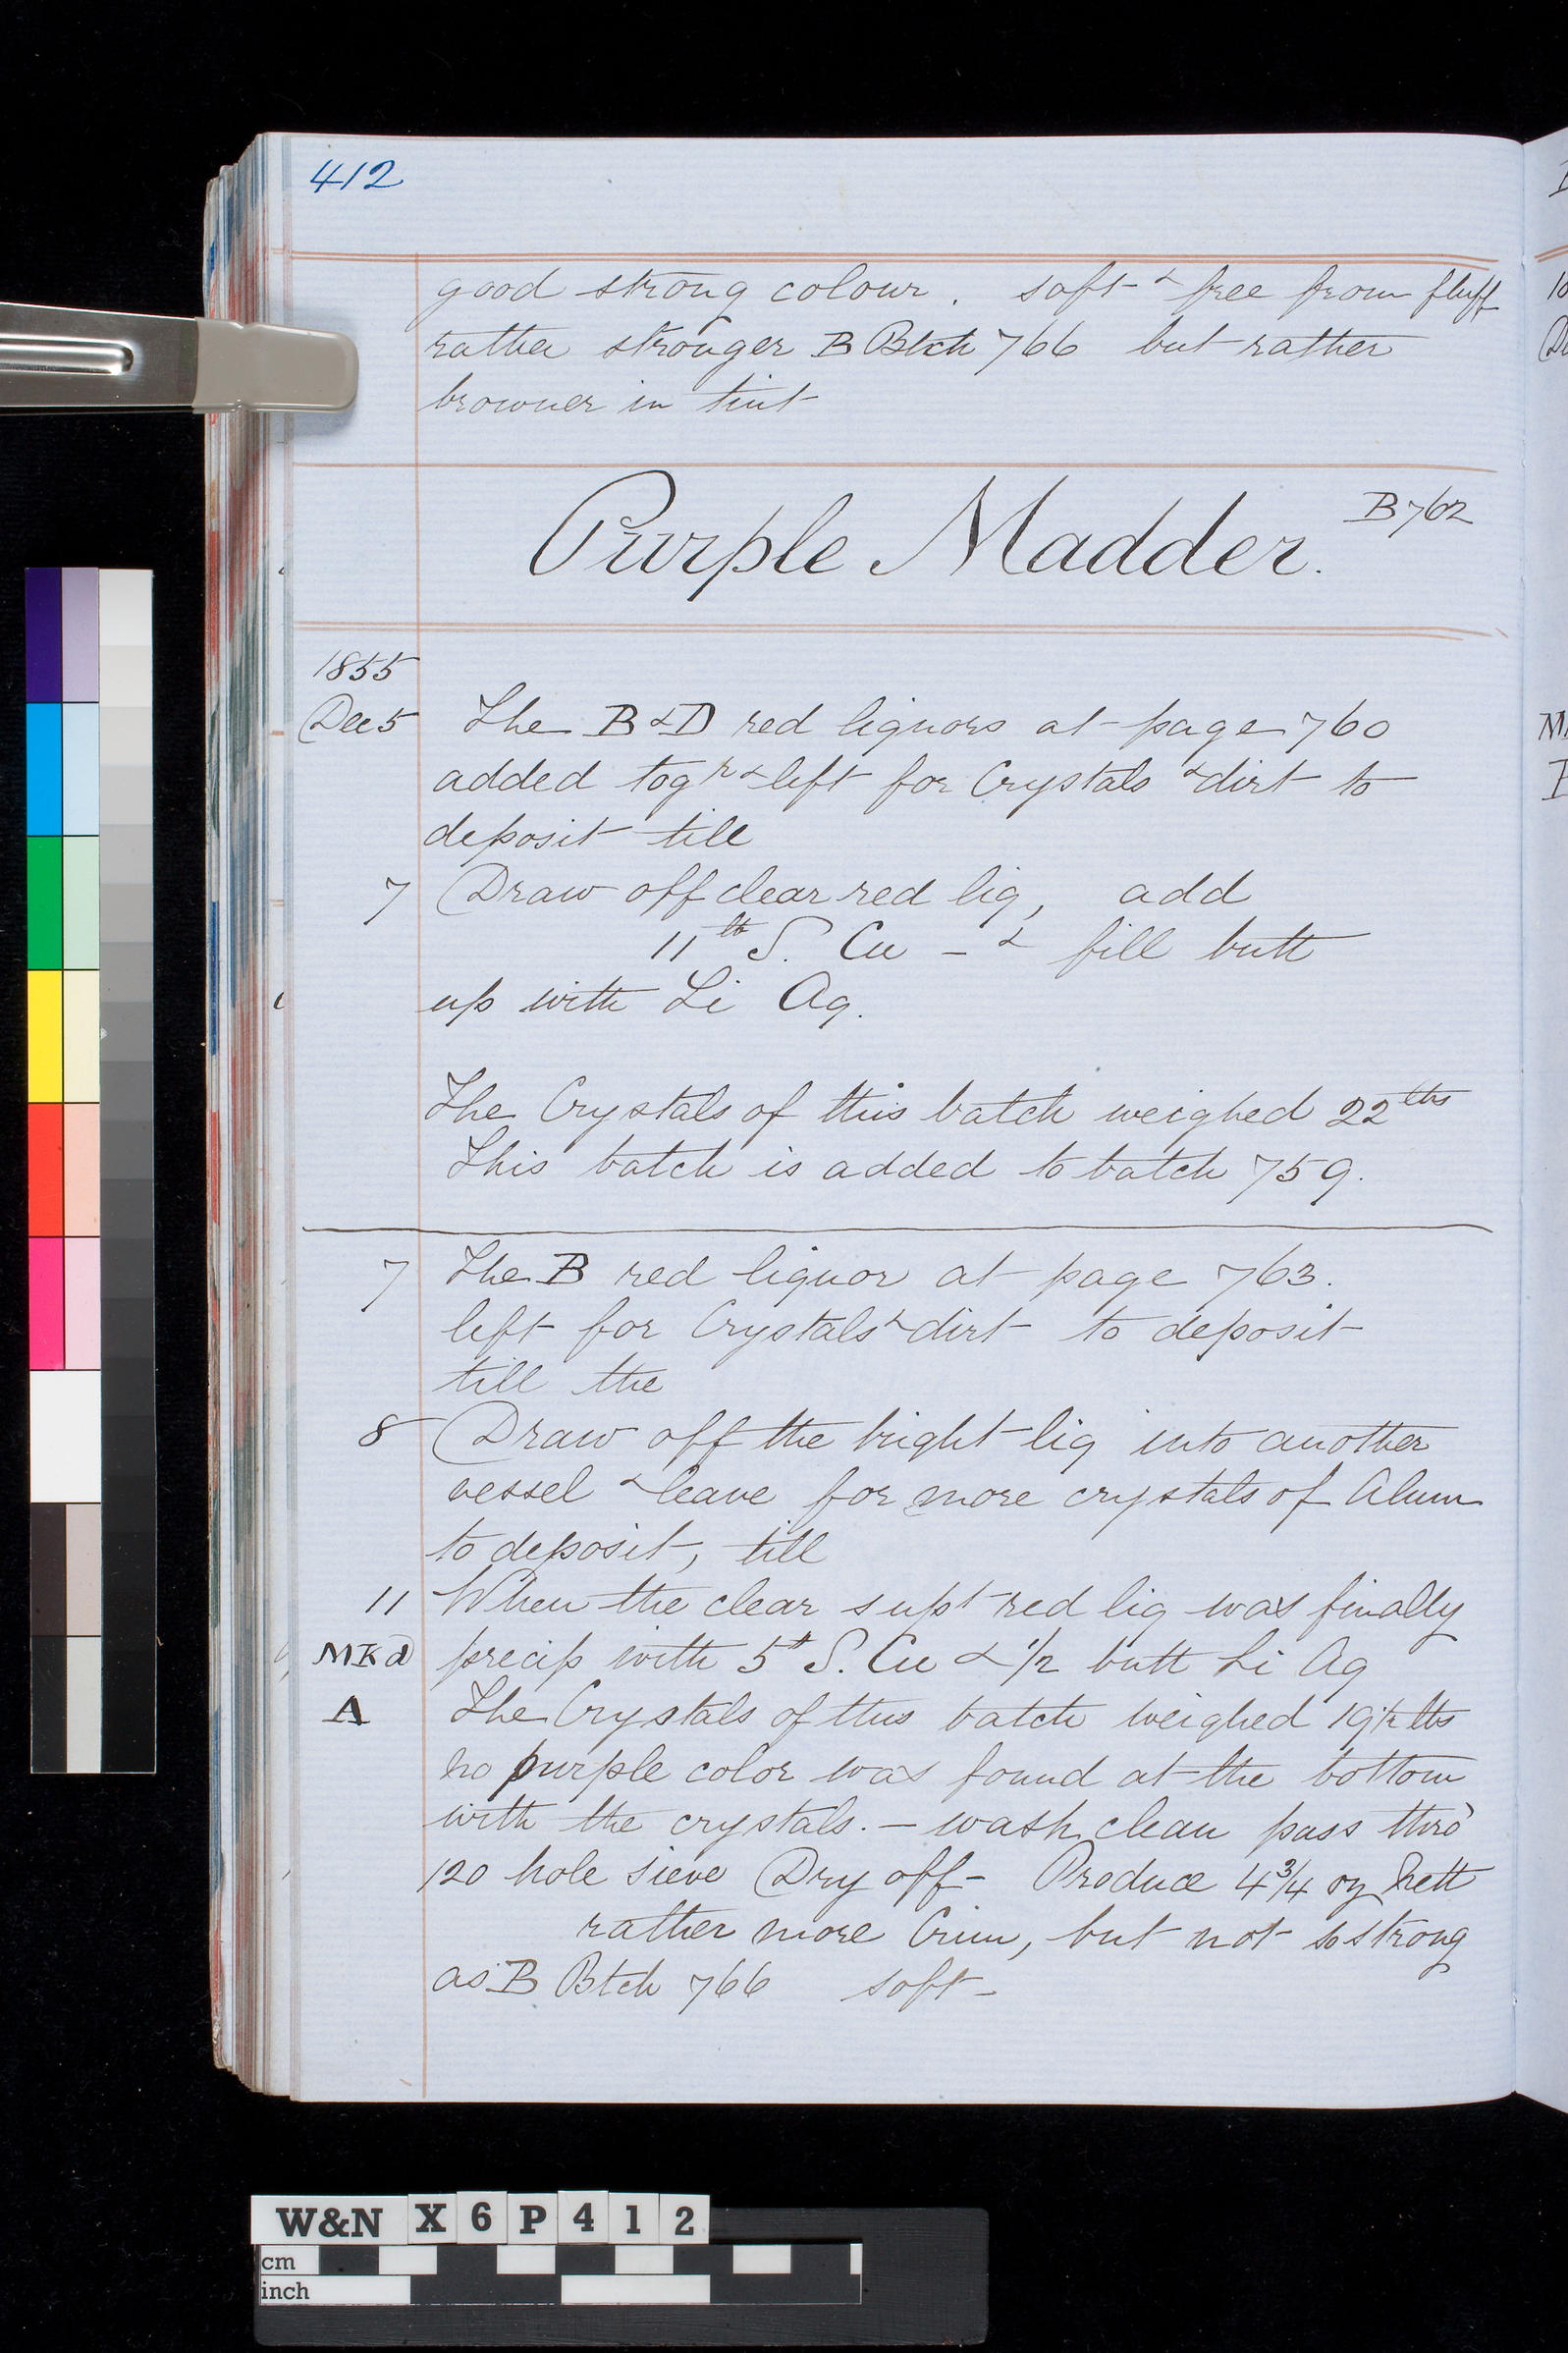 412
good strong colour. soft & free from fluff
rather stronger B Btch 766 but rather
browner in tint
Purple Madder. B762
1855
Dec 5 The B & D red liquors at page 760
added togr & left for Crystals & dirt to
deposit till
7 Draw off clear red liq, add
11 lb S. Cu - & fill butt
up with Li Aq.
The Crystals of this batch weighed 22 lbs
This batch is added to batch 759.
7 The B red liquor at page 763.
left for Crystals & dirt to deposit
till the
8 Draw off the bright liq into another
vessel & leave for more crystals of Alum
to deposit, till
11 When the clear supt red liq was finally
MKd precip with 5 # S. Cu & 1/2 butt Li Aq
A The Crystals of this batch weighed 19 1/2 lbs
no purple color was found at the bottom
with the crystals. - wash clean pass thro'
120 hole sieve Dry off - Produce 4 3/4 oz Nett
rather more Crim, but not so strong
as B Btch 766 soft -
W&N X6P412
cm
inch